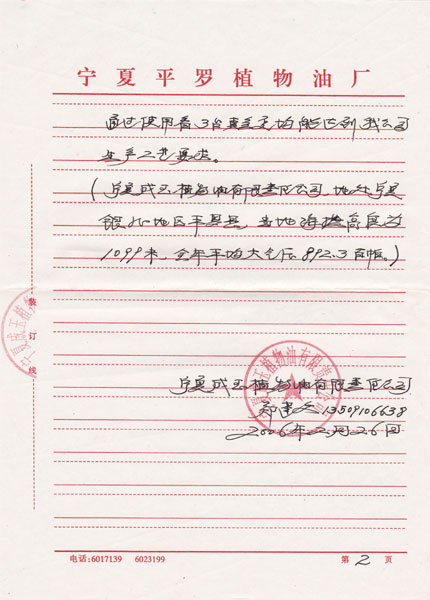 宁夏平罗植物油厂
通过使用着3台真空均能达到我公司
生产工艺要求。
(宁夏成玉植物油有限责任公司,地处宁夏
银北地区平罗县,当地海拔高度为
1099米,全年平均大气压892.3百帕。)
装订线
宁夏成玉植物油有限责任公司
13509106638
2006年2月26日
电话:6017139 6023199
第2页